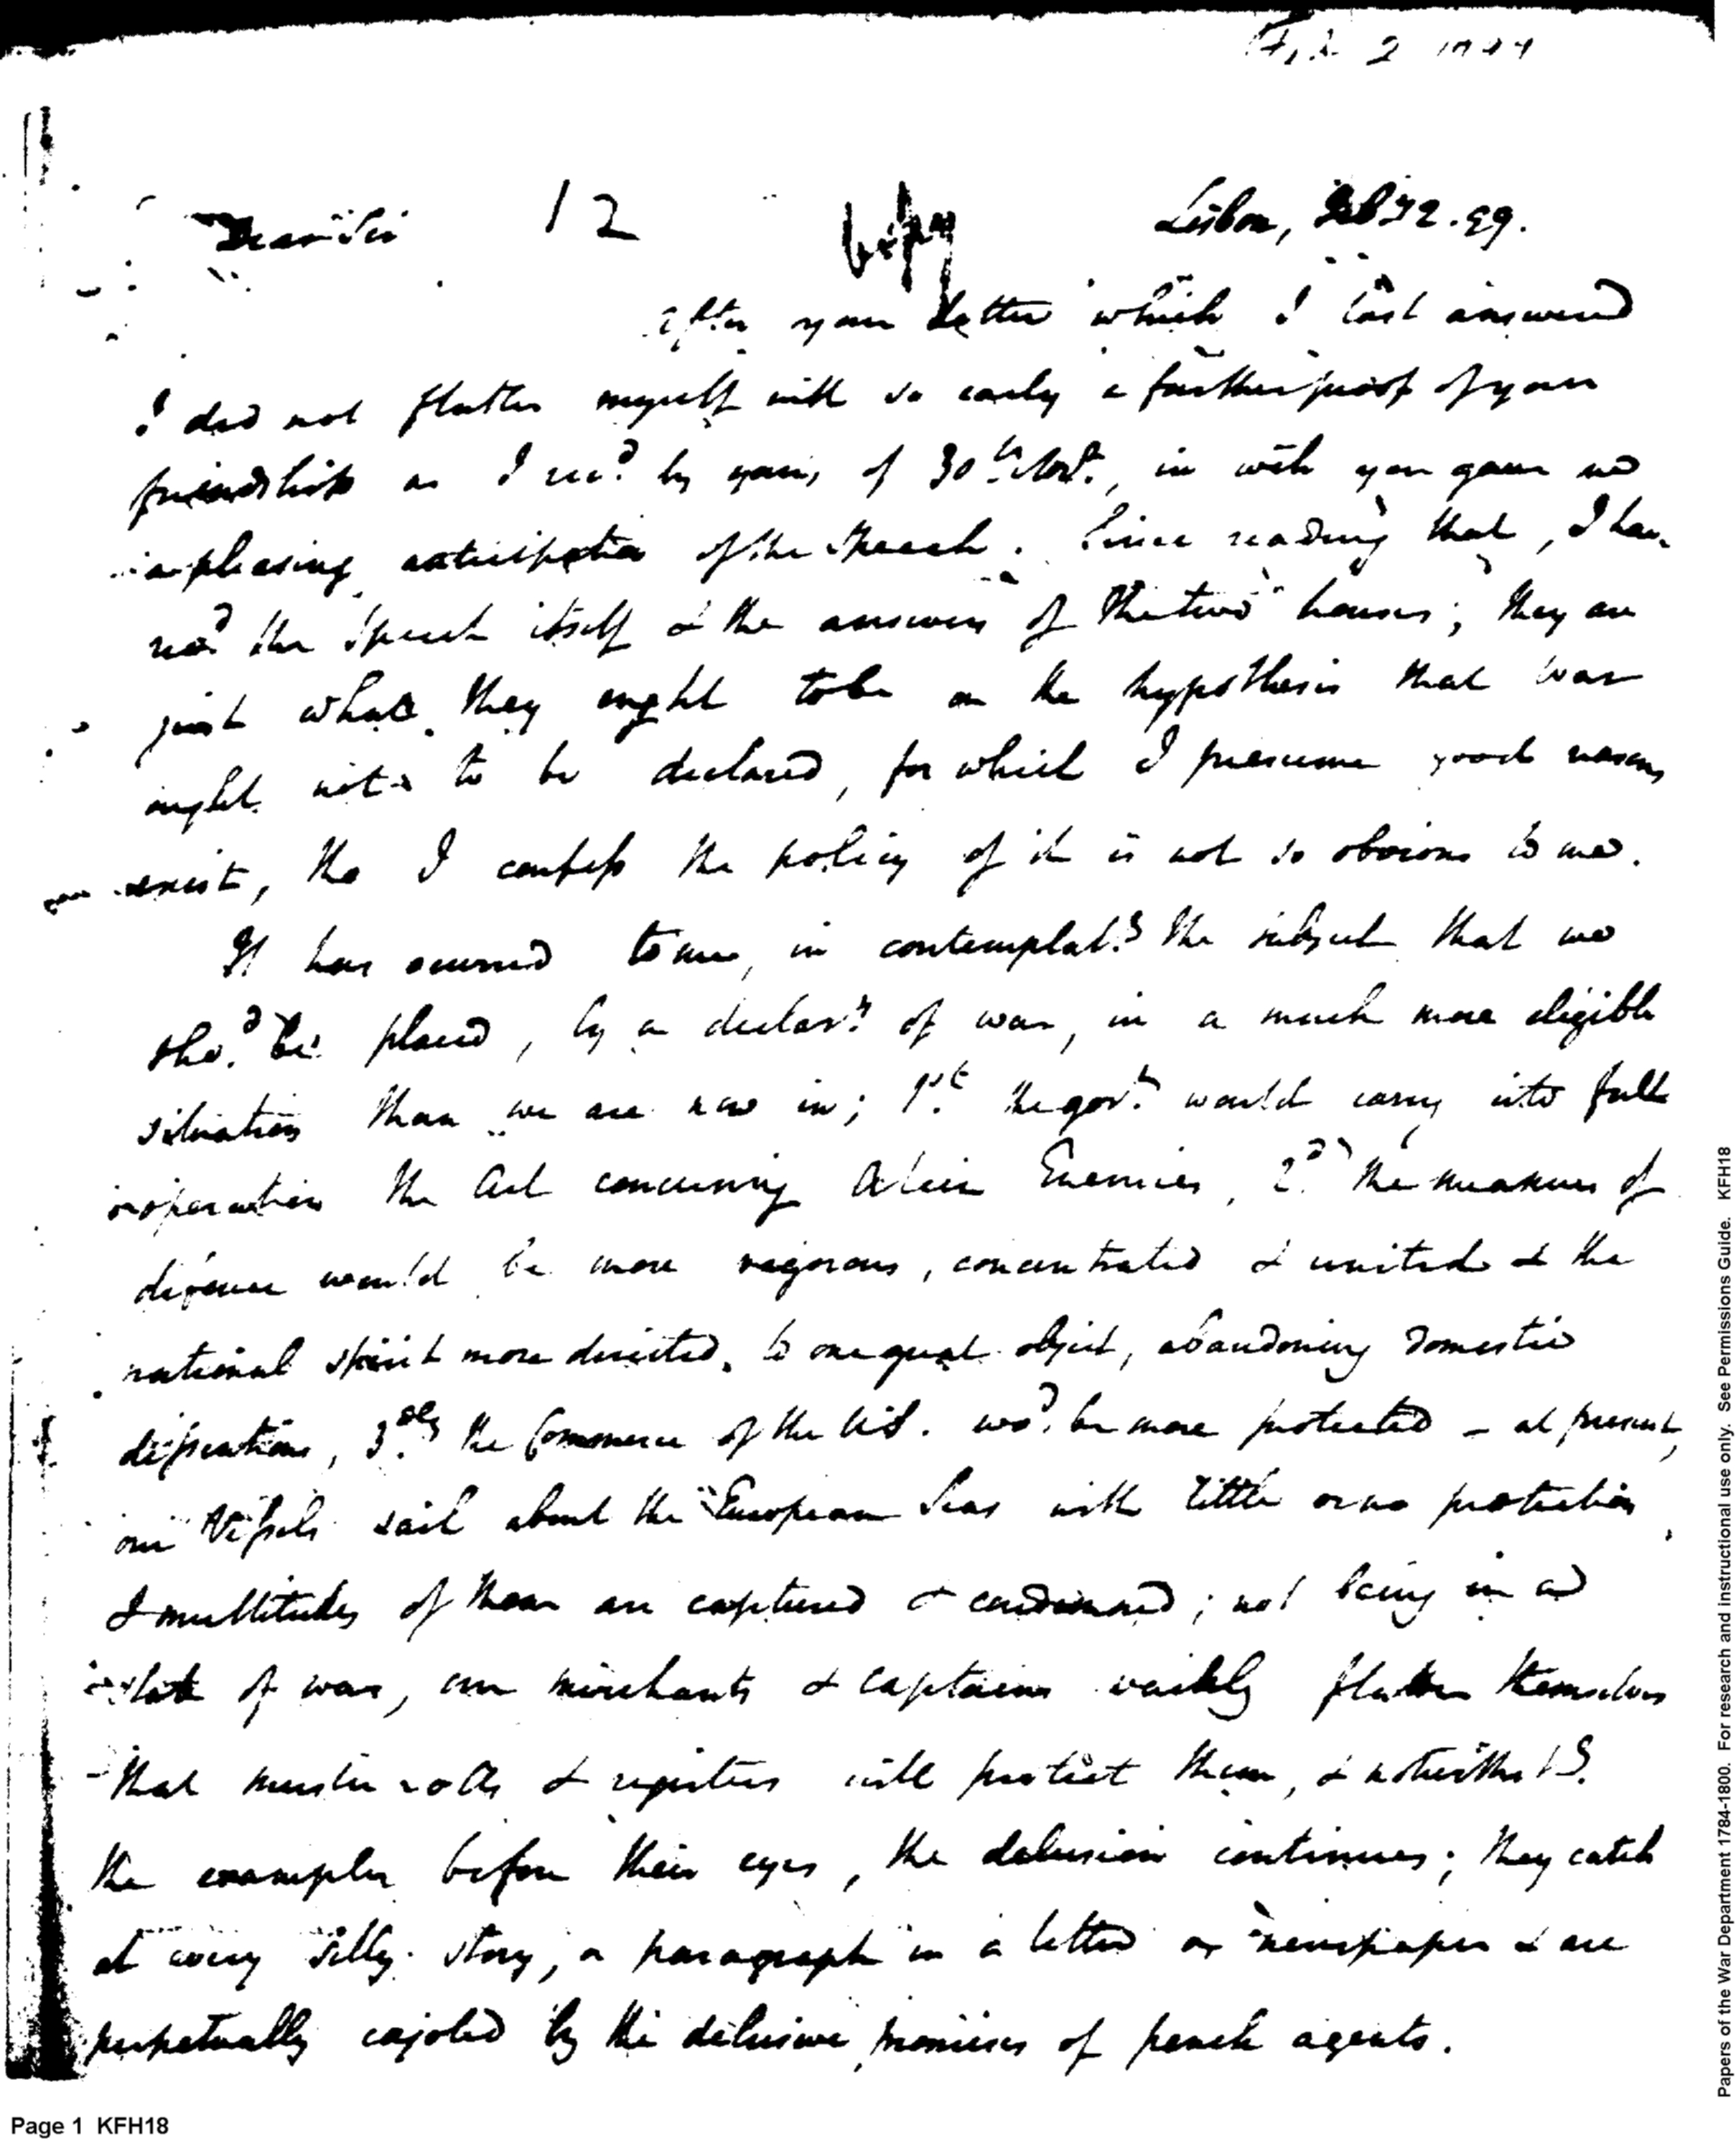 Feb 2 1799
Dear Sir 12 Copy Lisbon, Feb 2. 99.
after your Letter which I last answered
I did not flatter myself with so early a further proof of your
friendship as I rec.d by yours of 30th Nov.r, in wch you gave me
a pleasing anticipation of the Speech. Since reading that, I have
rec.d the Speech itself & the answers of the two houses; they are
just what they ought to be on the hypothesis that war
ought not to be declared, for which I presume good reasons
exist, tho I confess the policy of it is not so obvious to me.
It has occurred to me, in contemplat.g the subject that we
sho.d be placed, by a declar.n of war, in a much more eligible
situation than we are now in; 1.st the gov.t would carry into full
operation the Act concerning Alien Enemies, 2.d the measures of
defence would be more vigorous, concentrated & united & the
national spirit more directed to one great object, abandoning domestic
dissentions, 3.dly the Commerce of the U.S. wo.d be more protected – at present,
our Vessels sail about the European Seas with little or no protection
& multitudes of them are captured & condemned; not being in a
state of war, our merchants & captains vainly flatter themselves
that muster rolls & registers will protect them, & notwithst.g
the examples before their eyes, the delusion continues; they catch
at every silly story, a paragraph in a letter or newspaper & are
perpetually cajoled by the delusive promises of french agents.
Page 1 KFH18
Papers of the War Department 1784-1800. For research and instructional use only. See Permissions Guide. KFH18